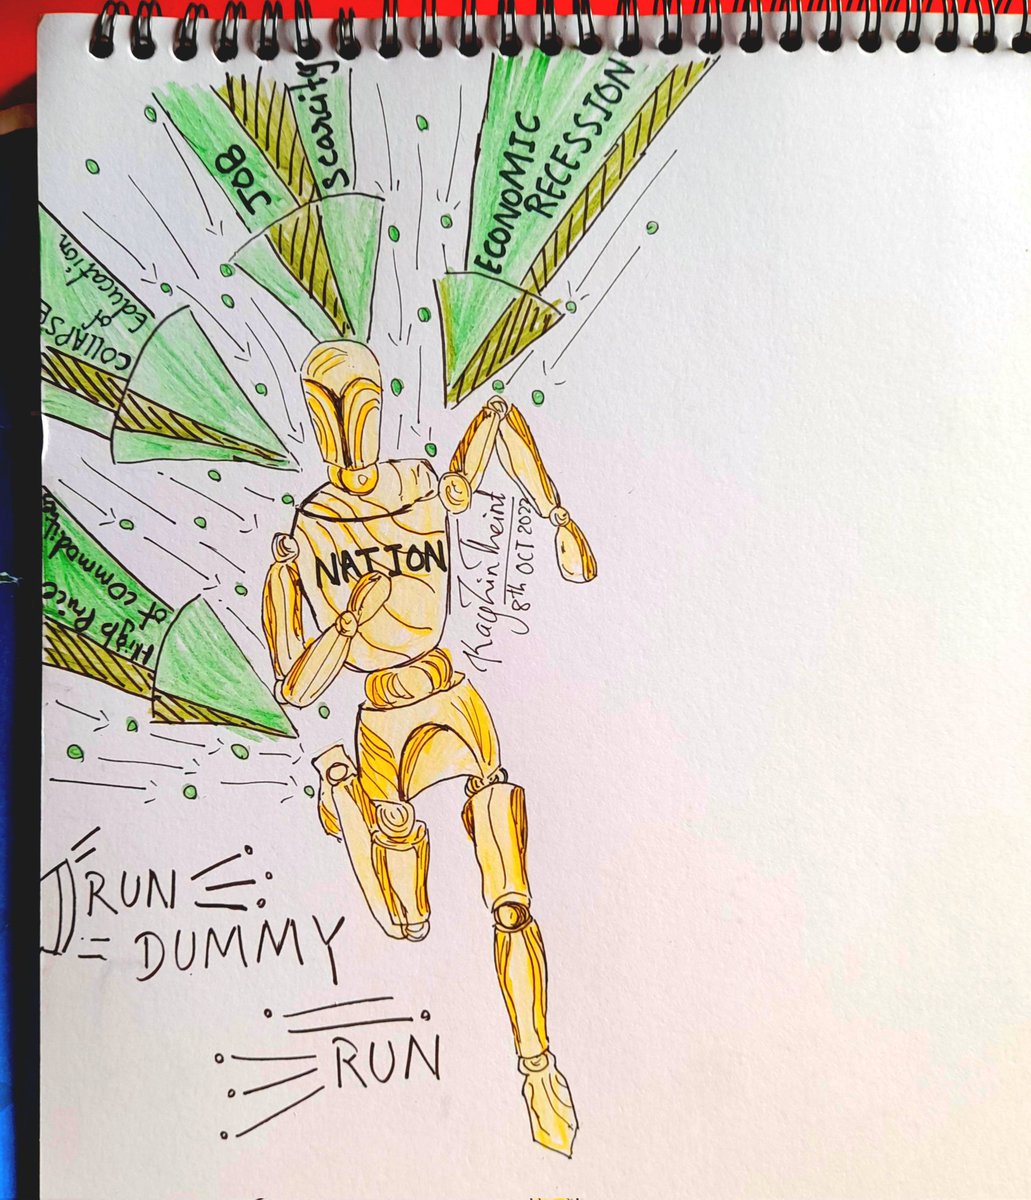 JOB
scarcity
ECONOMIC
RECESSION
COLLAPSE
of
Education
High Price
of commodities
NATION
Kayhin Theint
8th OCT 2022
RUN
DUMMY
RUN